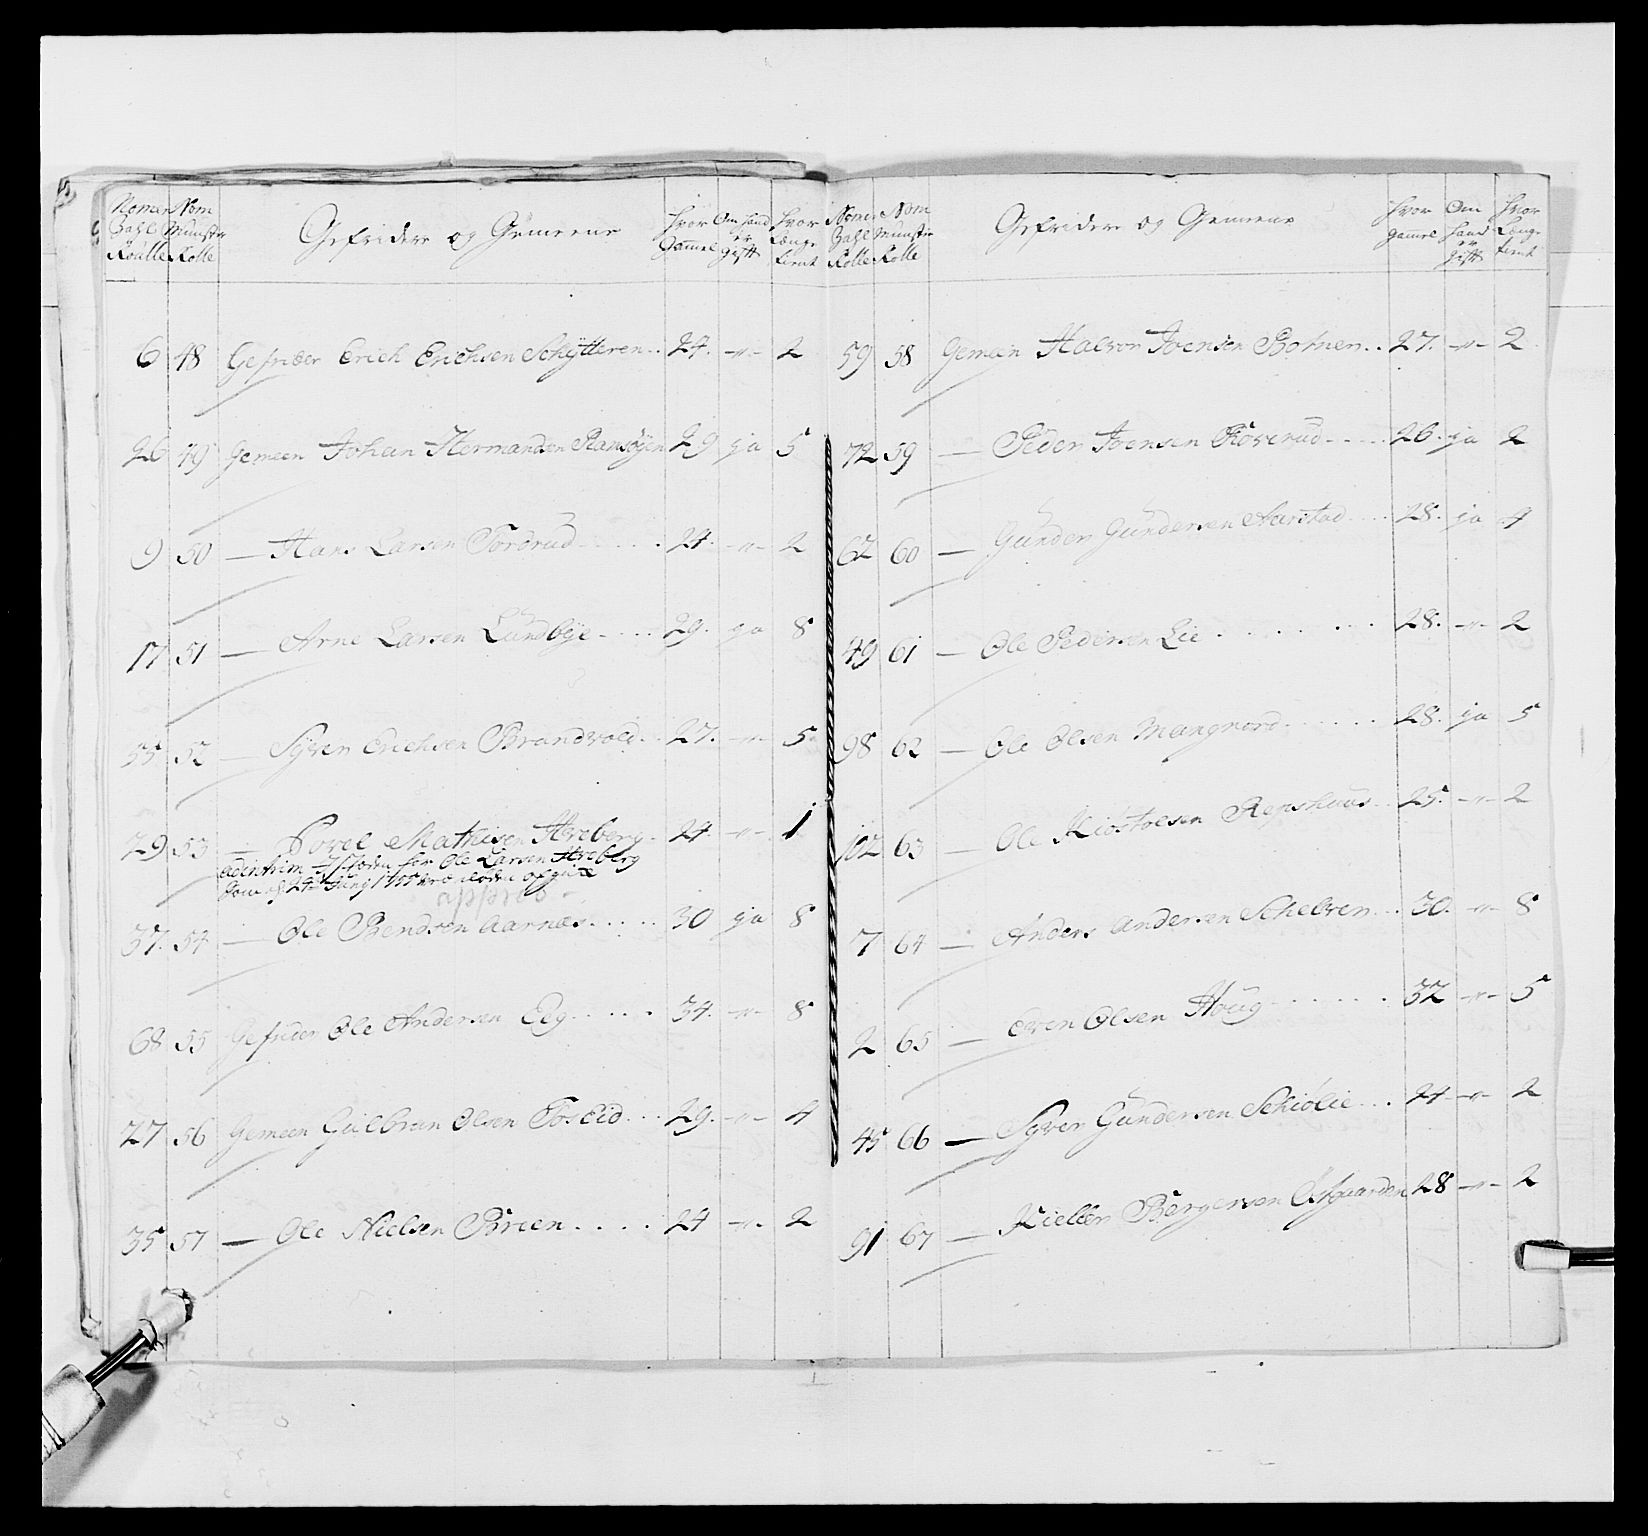 Nomer Zahl Roulle | Nom Munster Rolle | Gefridere og Gemeene | Hvor Gamel | Om hand er gift | Hvor Længe tient
6 48 Gefrider Erich Erichsen Schÿtteren .. 24. -"- 2
26 49 Gemeen Johan Hermansen Ramsøyen 29 ja 5
9 50 — Hans Larsen Tordrud ..... 24. -"- 2
17 51 — Arne Larsen Lundbye .... 29. ja 8
55 52 — Syver Erichsen Brandvold .. 27. -"- 5
29 53 — Povel Mathisen Hreberg . 24. -"- 1
i stæden for Ole Larsen Hreberg
som d 24de Junj 1755
approb
37. 54 — Ole Bendsen Aarnæs ..... 30 ja 8
68 55 Gefrider Ole Andersen Eeg ..... 34. -"- 8
27 56 Gemeen Gulbran Olsen Foseid ... 29. -"- 4
35 57 — Ole Nielsen Breen .... 24 -"- 2
Nomer Zahl Rolle | Nom Munster Rolle | Gefridere og Gemeene | Hvor gamel | Om hand er gift | Hvor Længe tient
59 58 Gemeen Halvor Joensen Botner .. 27. -"- 2
72 59 — Peder Joensen Roverud .... 26. ja 2
62 60 — Gunder Gundersen Aarstad .... 28. ja 4
49 61 — Ole Pedersen Lie ....... 28. -"- 2
98 62 — Ole Olsen Mangnord ...... 28. ja 5
102 63 — Ole Kiøstolsen Repshuus .. 25. -"- 2
7 64 — Anders Andersen Schelven .. 30. -"- 8
2 65 — Even Olsen Houg ...... 32 -"- 5
45 66 — Syver Gundersen Schiølie ... 24 -"- 2
91 67 — Kield Bergersen Østgaarden 28 -"- 2